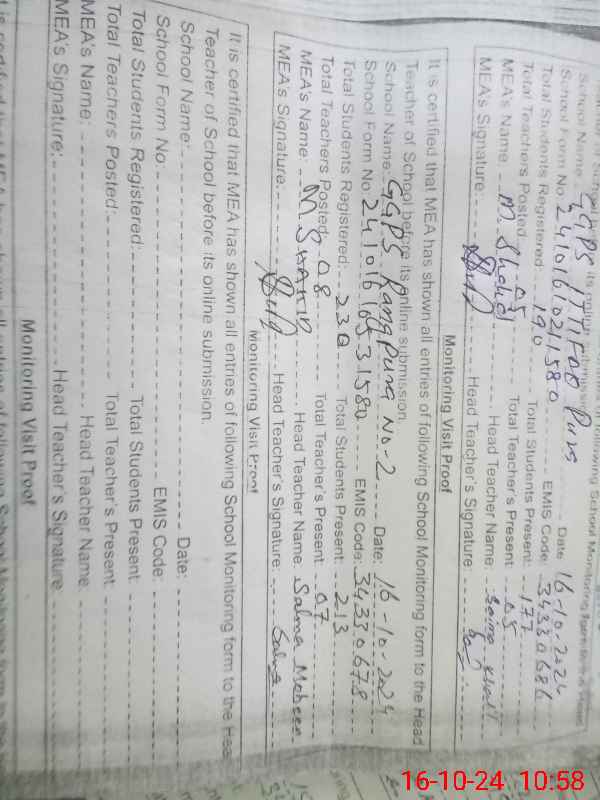 School Name: GGPS ITTFAQ Pura Date: 16-10-2024
School Form No: 24101610211580 EMIS Code: 34330686
Total Students Registered: 190 Total Students Present: 177
Total Teachers Posted: 05 Total Teacher's Present: 05
MEA's Name: M. Shahid Head Teacher Name:
MEA's Signature: Head Teacher's Signature:
Monitoring Visit Proof
It is certified that MEA has shown all entries of following School Monitoring form to the Head
Teacher of School before its online submission.
School Name: GGPS Rangpura No-2 Date: 16-10-2024
School Form No: EMIS Code: 34330678
Total Students Registered: 230 Total Students Present: 213
Total Teachers Posted: 08 Total Teacher's Present: 07
MEA's Name: M. SHAHID Head Teacher Name: Salma Meheen
MEA's Signature: Head Teacher's Signature: Salma
Monitoring Visit Proof
It is certified that MEA has shown all entries of following School Monitoring form to the Head
Teacher of School before its online submission.
School Name: Date:
School Form No: EMIS Code:
Total Students Registered: Total Students Present:
Total Teachers Posted: Total Teacher's Present:
MEA's Name: Head Teacher Name:
MEA's Signature: Head Teacher's Signature
Monitoring Visit Proof
16-10-24 10:58